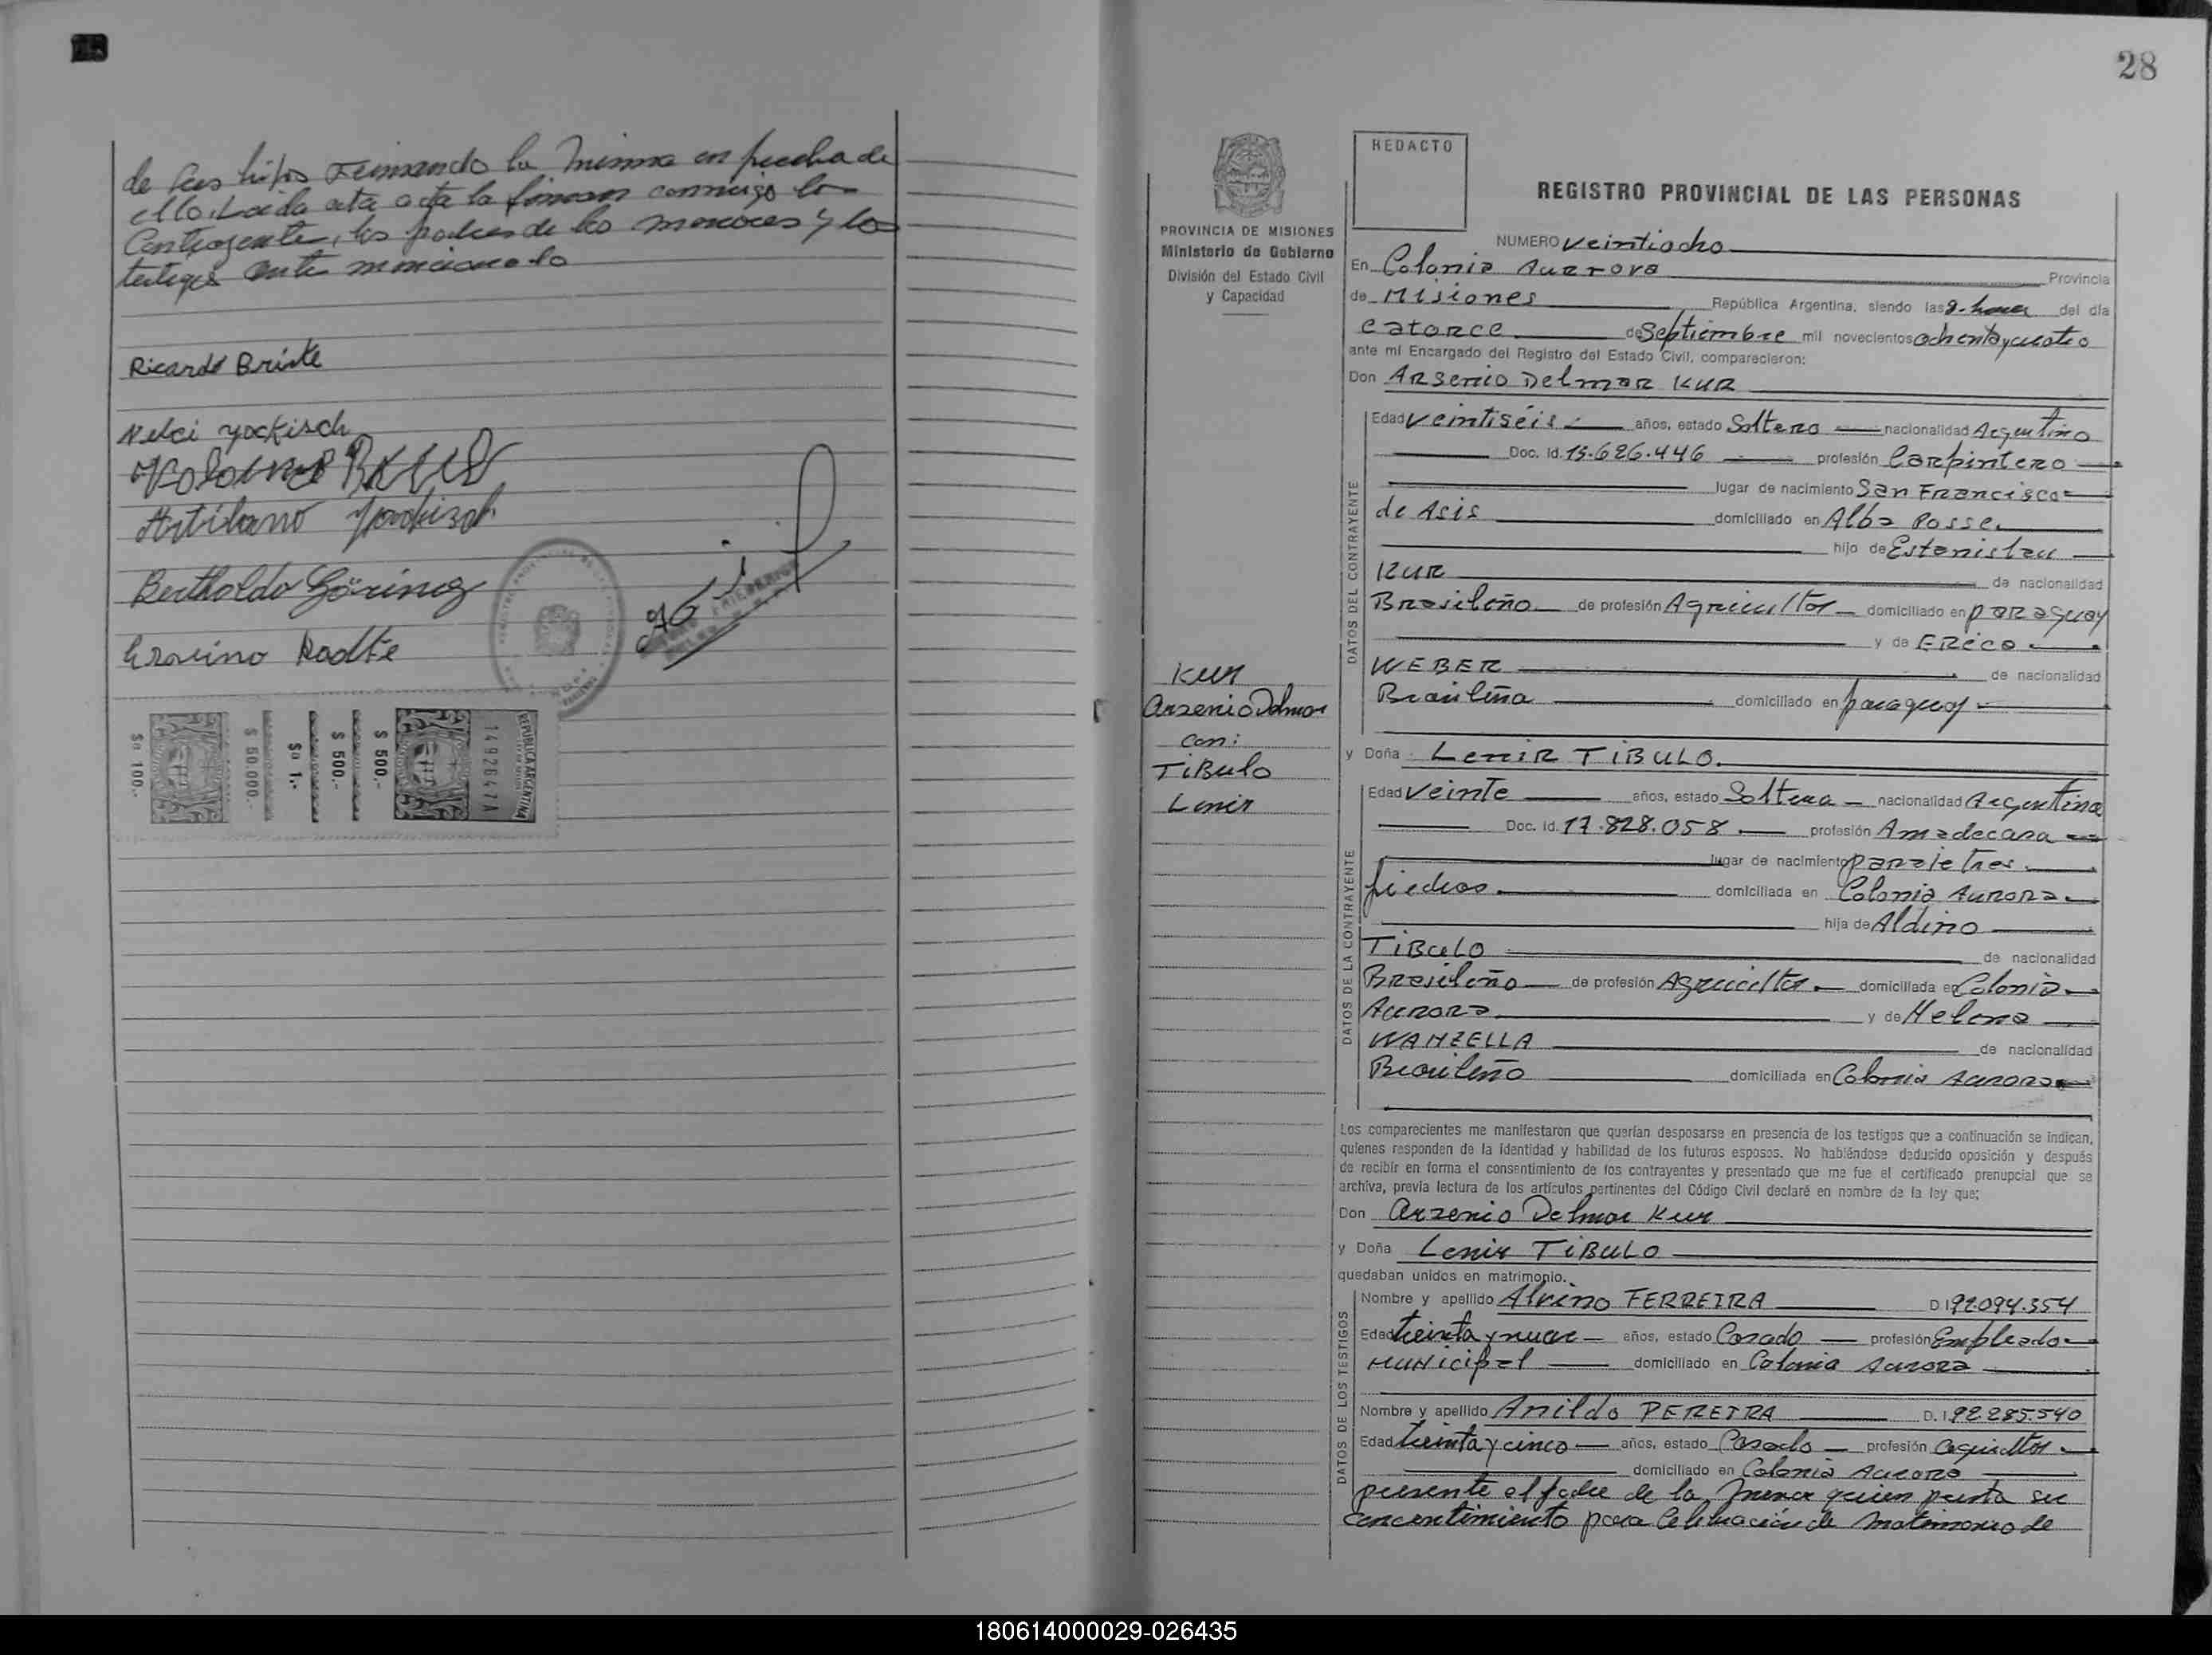 de sus hijos firmando la misma en prueba de
ello. Leida esta acta la firman conmigo los
Contrayentes, los padres de los menores y los
testigos ante mencionado
Ricardo Briste
Nelci Yockisch
Artibano Yockisch
Bertholdo Göring
Ervino Radtke
$a 100.-
$ 50.000.-
$a 1.-
$ 500.-
$ 500.-
149264 7A
REPUBLICA ARGENTINA
28
REDACTO
REGISTRO PROVINCIAL DE LAS PERSONAS
PROVINCIA DE MISIONES
Ministerio de Gobierno
División del Estado Civil
y Capacidad
Kur
Arzenio Delmar
con:
TiBulo
Lenir
NUMERO veintiocho
En Colonia Aurrora Provincia
de Misiones República Argentina, siendo las 9. horas del día
catorce de Septiembre mil novecientos ochenta y cuatro
ante mí Encargado del Registro del Estado Civil, comparecieron:
Don ARsenio Delmar KUR
DATOS DEL CONTRAYENTE
Edad veintiséis años, estado Soltero nacionalidad Argentino
Doc. Id. 15.626.446 profesión Carpintero
lugar de nacimiento San Francisco
de Asis domiciliado en Alba Posse
hijo de Estanislau
KUR de nacionalidad
Brasileño de profesión Agricultor domiciliado en paraguay
y de ERica
WEBER de nacionalidad
Brasileña domiciliado en paraguay
y Doña LeniR TIBULO.
DATOS DE LA CONTRAYENTE
Edad veinte años, estado Soltera nacionalidad Argentina
Doc. Id. 17.828.058 profesión Amadecasa
lugar de nacimiento paraje tres
piedras. domiciliada en Colonia Aurora
hija de Aldino
TiBulo de nacionalidad
Brasileño de profesión Agricultor domiciliada en Colonia
Aurora y de Helena
WANZELLA de nacionalidad
Brasileño domiciliada en Colonia Aurora
Los comparecientes me manifestaron que querían desposarse en presencia de los testigos que a continuación se indican,
quienes responden de la identidad y habilidad de los futuros esposos. No habiéndose deducido oposición y después
de recibir en forma el consentimiento de los contrayentes y presentado que me fue el certificado prenupcial que se
archiva, previa lectura de los artículos pertinentes del Código Civil declaré en nombre de la ley que;
Don Arzenio Delmar Kur
y Doña Lenir TiBULO
quedaban unidos en matrimonio.
DATOS DE LOS TESTIGOS
Nombre y apellido Alvino FERREIRA D.I 92.094.354
Edad treinta y nueve años, estado Casado profesión Empleado
Municipal domiciliado en Colonia Aurora
Nombre y apellido Anildo PEREIRA D. I. 92.285.540
Edad treinta y cinco años, estado Casado profesión agricultor
domiciliado en Colonia Aurora
presente el padre de la menor quien presta su
concentimiento para celebración de matrimonio de
180614000029-026435